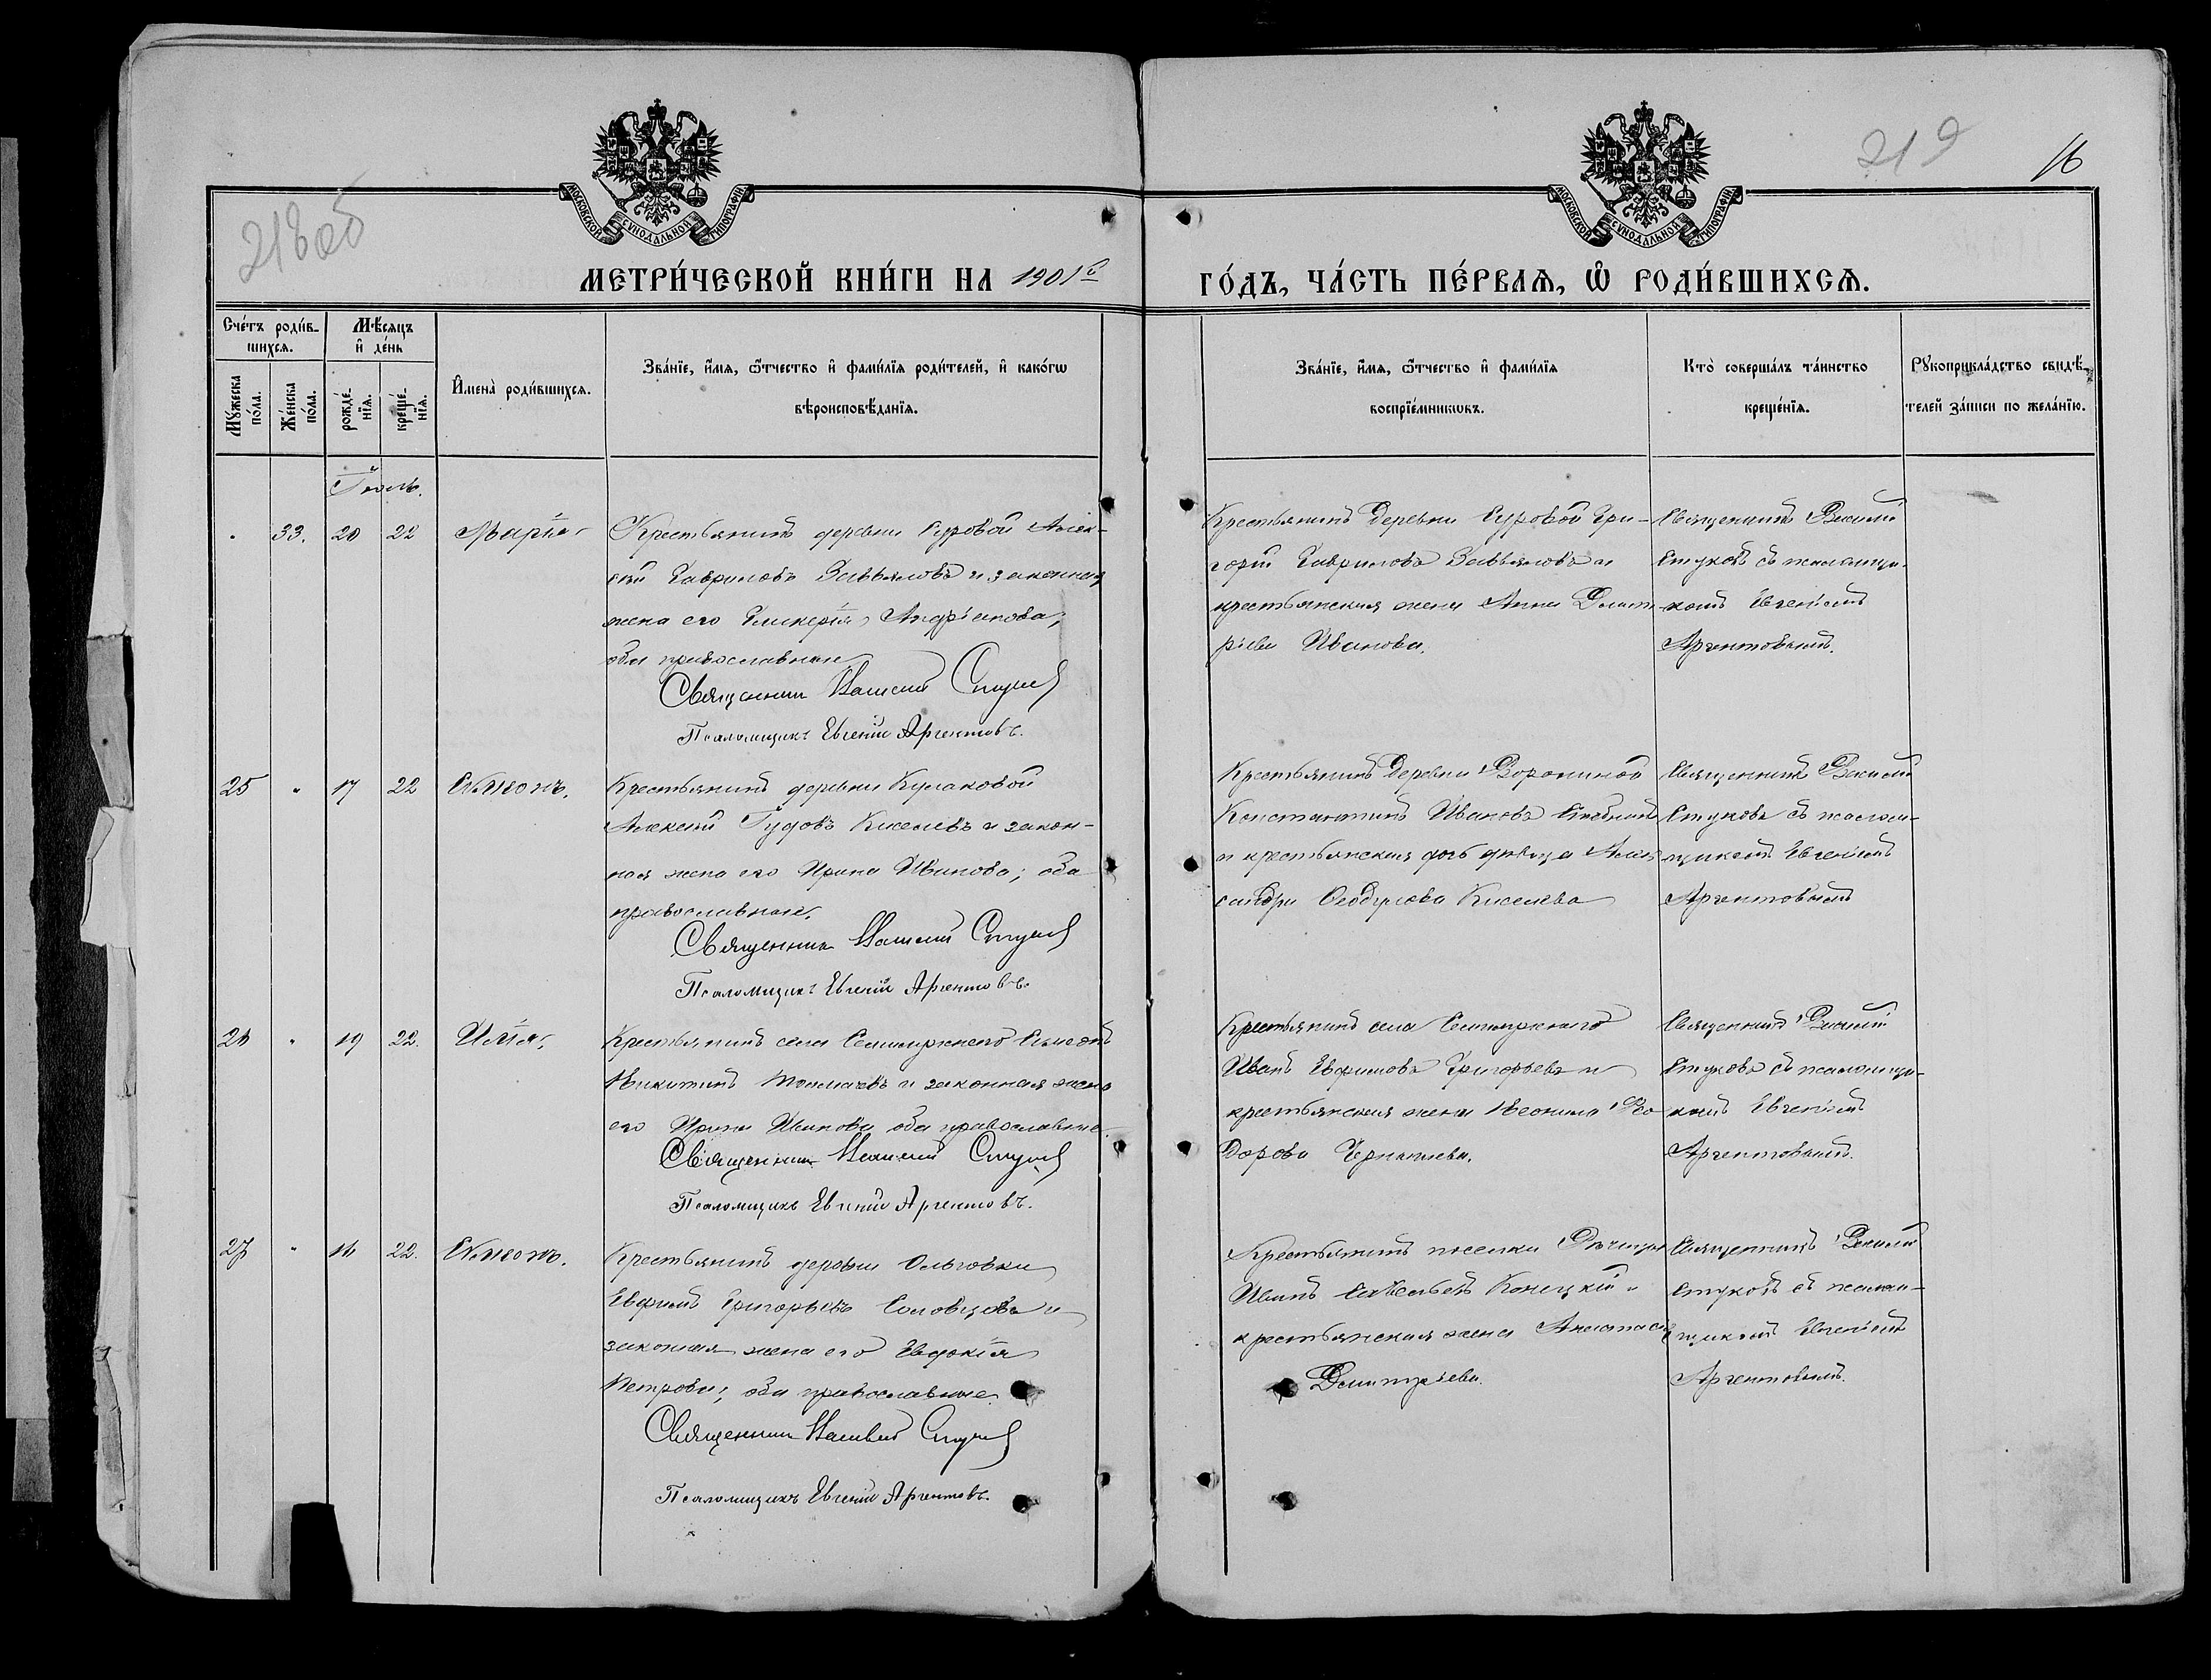 218об
219
16
МОСКОВСКОЙ СѴНОДАЛЬНОЙ ТИПОГРАФІИ
МОСКОВСКОЙ СѴНОДАЛЬНОЙ ТИПОГРАФІИ
МЕТРИ́ЧЕСКОЙ КНИ́ГИ НА 1901й
ГО́ДЪ, ЧА́СТЬ ПЕ́РВАЯ, Ѡ РОДИ́ВШИХСЯ.
Сче́тъ роди́в-
шихся.
Мѣ́сяцъ
и де́нь
Му́жеска
по́ла.
Же́нска
по́ла.
рожде́-
нїя.
креще́-
нїя.
Имена̀ роди́вшихся.
Зва́нїе, и́мя, ѻ́тчество и фами́лїя роди́телей, и како́гѡ
вѣроисповѣ́данїя.
Зва́нїе, и́мя, ѻ́тчество и фами́лїя
воспрїе́мникѡвъ.
Кто̀ соверша́лъ та́инство
креще́нїя.
Рꙋкоприкла́дство свидѣ́-
телей за́писи по жела́нїю.
Іюль.
33. 20 22 Марія
Крестьянинъ деревни Суровой Алек-
сѣй Гавриловъ Завьяловъ и законная
жена его Гликерія Андріанова,
оба православные
Священникъ Василий Стуковъ
Псаломщикъ Евгеній Аргентовъ.
Крестьянинъ деревни Суровой Гри-
горій Гавриловъ Завьяловъ и
крестьянская жена Анна Димит-
ріева Иванова.
Священникъ Василій
Стуковъ съ псаломщи-
комъ Евгеніемъ
Аргентовымъ.
25 " 17 22 Симеонъ.
Крестьянинъ деревни Кулаковой
Алексѣй Киселевъ и закон-
ная жена его Ирина Иванова; оба
православные.
Священникъ Василий Стуковъ
Псаломщикъ Евгеній Аргентовъ.
Крестьянинъ деревни Ворониной
Константинъ Ивановъ
и крестьянская дочь дѣвица Алек
сандра Феодулова Киселева
Священникъ Василій
Стуковъ съ псалом-
щикомъ Евгеніемъ
Аргентовымъ
26 " 19 22. Илія.
Крестьянинъ села Симеонъ
Никитинъ Толмачевъ и законная жена
его Ирина Иванова оба православные.
Священникъ Василий Стуковъ
Псаломщикъ Евгеній Аргентовъ.
Крестьянинъ села
Иванъ Евфимовъ Григорьевъ и
крестьянская жена Неонила Фео
дорова
Священникъ Василій
Стуковъ съ псаломщи-
комъ Евгеніемъ
Аргентовымъ.
27 " 16 22. Симеонъ.
Крестьянинъ деревни Ольговки
Евфимъ Григорьевъ Соловцовъ и
законная жена его Евдокія
Петрова; оба православные.
Священникъ Василий Стуковъ
Псаломщикъ Евгеній Аргентовъ.
Крестьянинъ поселка
Иванъ Савельевъ Конецкій и
крестьянская жена Анастасія
Димитріева.
Священникъ Василій
Стуковъ съ псалом-
щикомъ Евгеніемъ
Аргентовымъ.